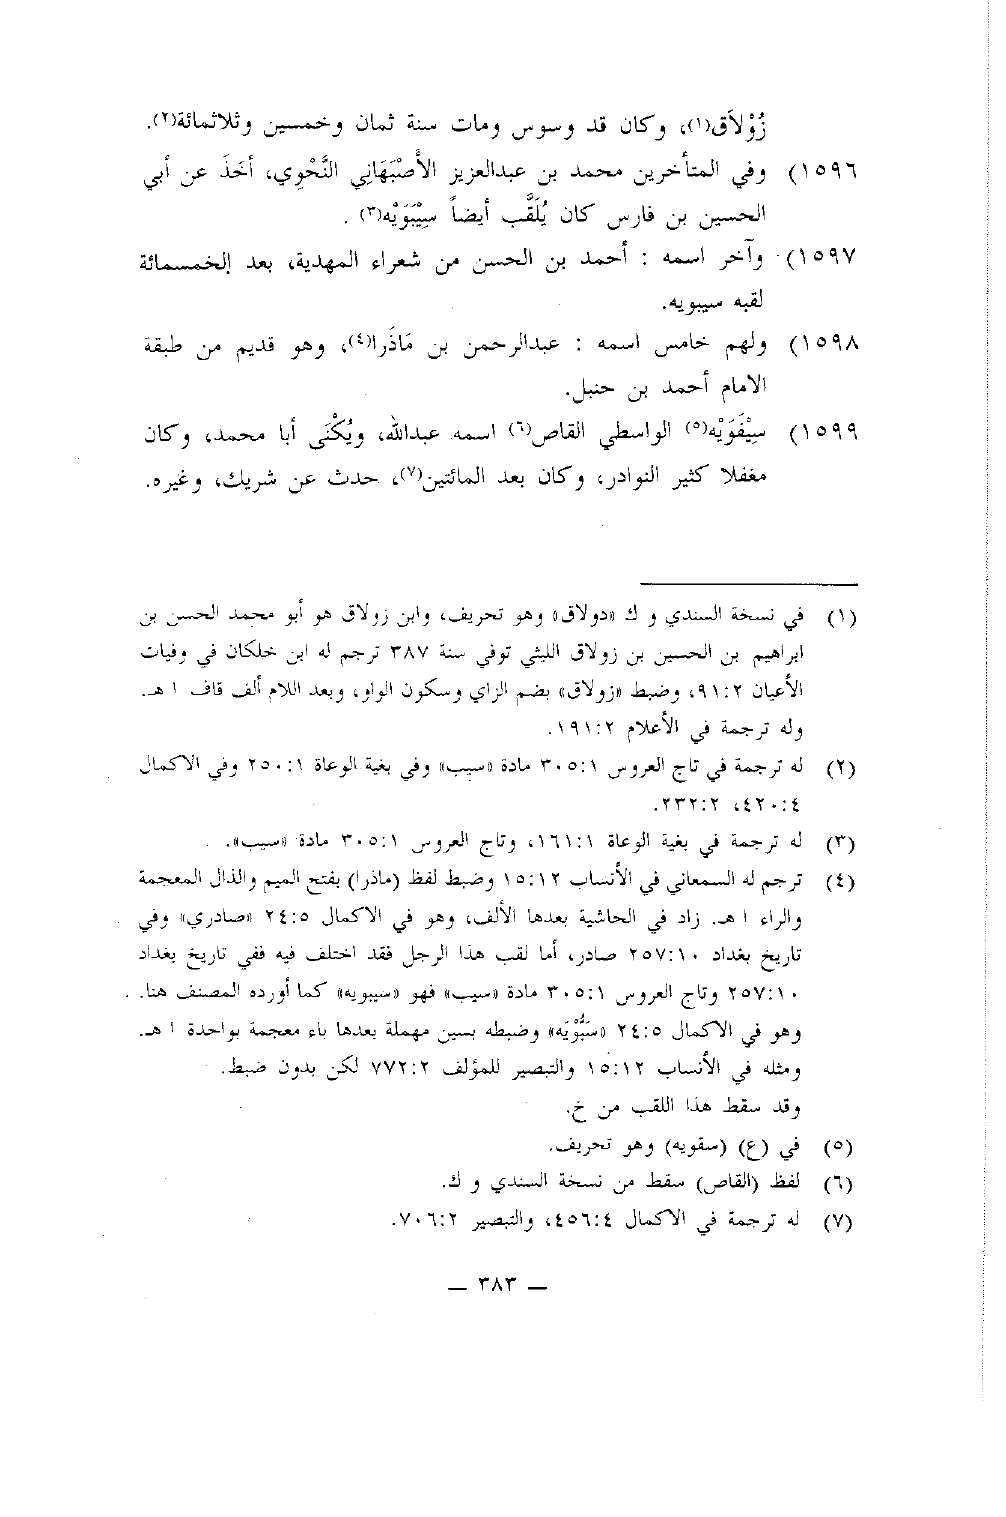 زُوْلاَق(١)، وكان قد وسوس ومات سنة ثمان وخمسين وثلاثمائة(٢).
١٥٩٦) وفي المتأخرين محمد بن عبدالعزيز الأَصْبَهَانِي النَّحْوِي، أخَذَ عن أبي
الحسين بن فارس كان يُلَقَّب أيضاً سِيْبَوَيْه(٣).
١٥٩٧) وآخر اسمه : أحمد بن الحسن من شعراء المهدية، بعد الخمسمائة
لقبه سيبويه.
١٥٩٨) ولهم خامس اسمه : عبدالرحمن بن مَاذَرا(٤)، وهو قديم من طبقة
الامام أحمد بن حنبل.
١٥٩٩) سِيْفَوَيْه(٥) الواسطي القاص(٦) اسمه عبدالله، ويُكْنَى أبا محمد، وكان
مغفلا كثير النوادر، وكان بعد المائتين(٧)، حدث عن شريك، وغيره.
(١) في نسخة السندي و ك «دولاق» وهو تحريف، وابن زولاق هو أبو محمد الحسن بن
ابراهيم بن الحسين بن زولاق الليثي توفي سنة ٣٨٧ ترجم له ابن خلكان في وفيات
الأعيان ٩١:٢، وضبط «زولاق» بضم الزاي وسكون الواو، وبعد اللام ألف قاف ا هـ.
وله ترجمة في الأعلام ١٩١:٢.
(٢) له ترجمة في تاج العروس ٣٠٥:١ مادة «سيب» وفي بغية الوعاة ٢٥٠:١ وفي الاكمال
٤٢٠:٤، ٢٣٢:٢.
(٣) له ترجمة في بغية الوعاة ١٦١:١، وتاج العروس ٣٠٥:١ مادة «سيب».
(٤) ترجم له السمعاني في الأنساب ١٥:١٢ وضبط لفظ (ماذرا) بفتح الميم والذال المعجمة
والراء ا هـ. زاد في الحاشية بعدها الألف، وهو في الاكمال ٢٤:٥ «صادري» وفي
تاريخ بغداد ٢٥٧:١٠ صادر، أما لقب هذا الرجل فقد اختلف فيه ففي تاريخ بغداد
٢٥٧:١٠ وتاج العروس ٣٠٥:١ مادة «سيب» فهو «سيبويه» كما أورده المصنف هنا.
وهو في الاكمال ٢٤:٥ «سَبُّوْيَه» وضبطه بسين مهملة بعدها باء معجمة بواحدة ا هـ.
ومثله في الأنساب ١٥:١٢ والتبصير للمؤلف ٧٧٢:٢ لكن بدون ضبط.
وقد سقط هذا اللقب من خ.
(٥) في (ع) (سقويه) وهو تحريف.
(٦) لفظ (القاص) سقط من نسخة السندي و ك.
(٧) له ترجمة في الاكمال ٤٥٦:٤، والتبصير ٧٠٦:٢.
— ٣٨٣ —